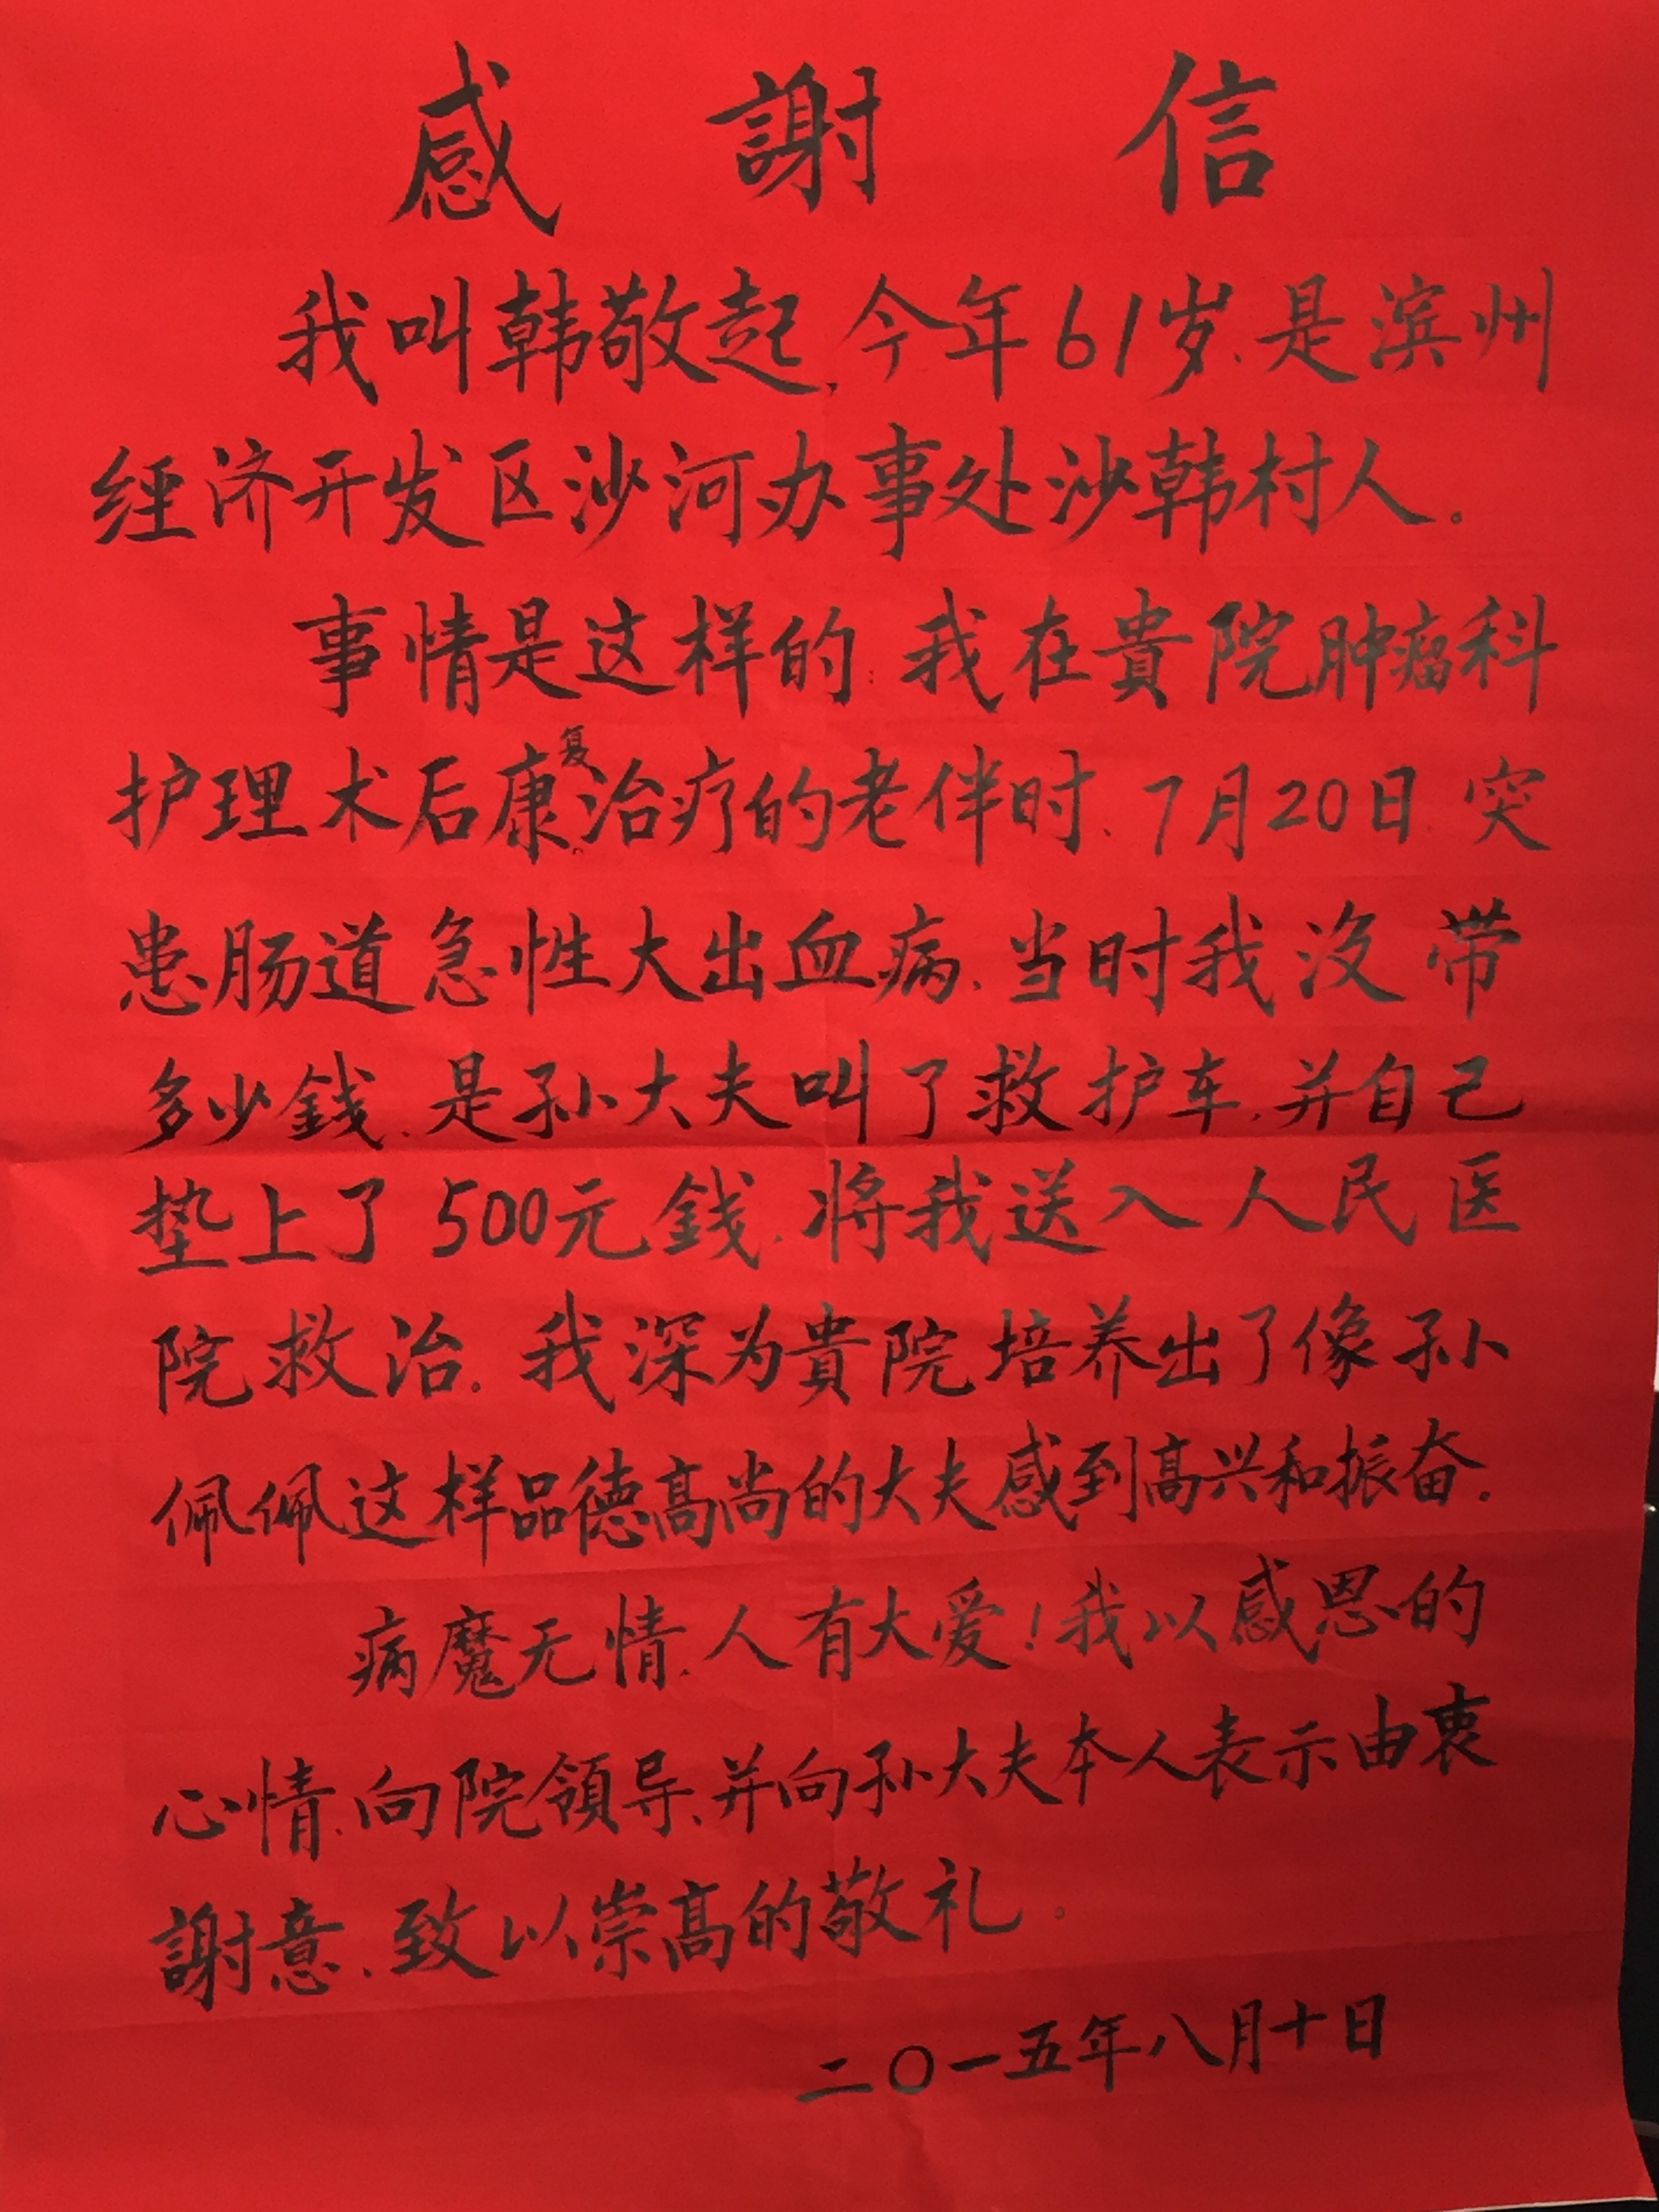 感謝信
我叫韩敬起,今年61岁、是滨州
经济开发区沙河办事处沙韩村人。
事情是这样的:我在貴院肿瘤科
护理术后康复治疗的老伴时、7月20日、突
患肠道急性大出血病、当时我没带
多少錢、是孙大夫叫了救护车、并自己
垫上了500元錢、将我送入人民医
院救治。我深为貴院培养出了像孙
佩佩这样品德高尚的大夫感到高兴和振奋。
病魔无情、人有大爱!我以感恩的
心情、向院領导、并向孙大夫本人表示由衷
謝意、致以崇高的敬礼。
二〇一五年八月十日